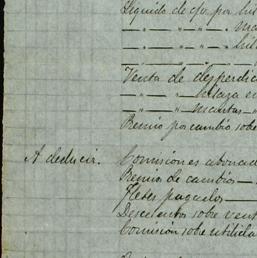 Líquido de c/v. por
" " " "
" " " "
Venta de desperdic
" " hilaza en
" " mantas "
Premio por cambio sobre
A deducir. Comisiones abonad
Premios de cambios
Fletes pagados
Descuentos sobre vent
Comisión sobre utilida